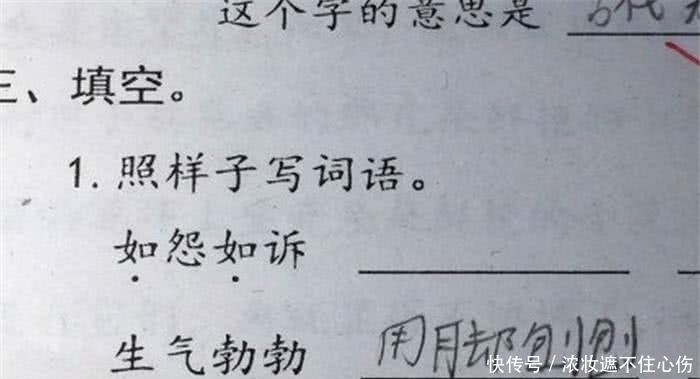 这个字的意思是 古代
三、填空。
1. 照样子写词语。
如怨如诉
生气勃勃 用
快传号 / 浓妆遮不住心伤